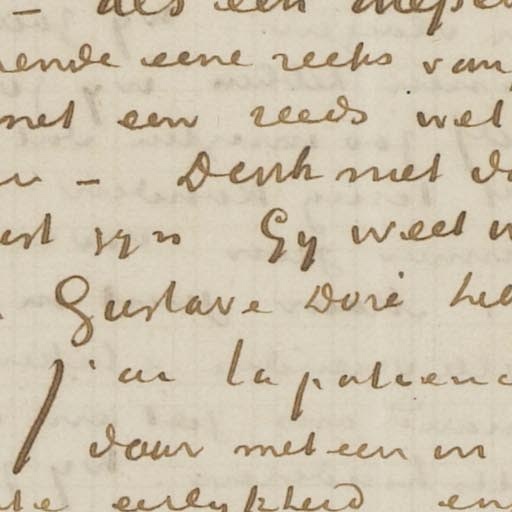 – als een
ende eene reeks van
met een reeds wel
– Denk niet da
zyn Gy weet
Gustave Doré heb
j'ai la patience
daar meteen in
te eerlykheid en